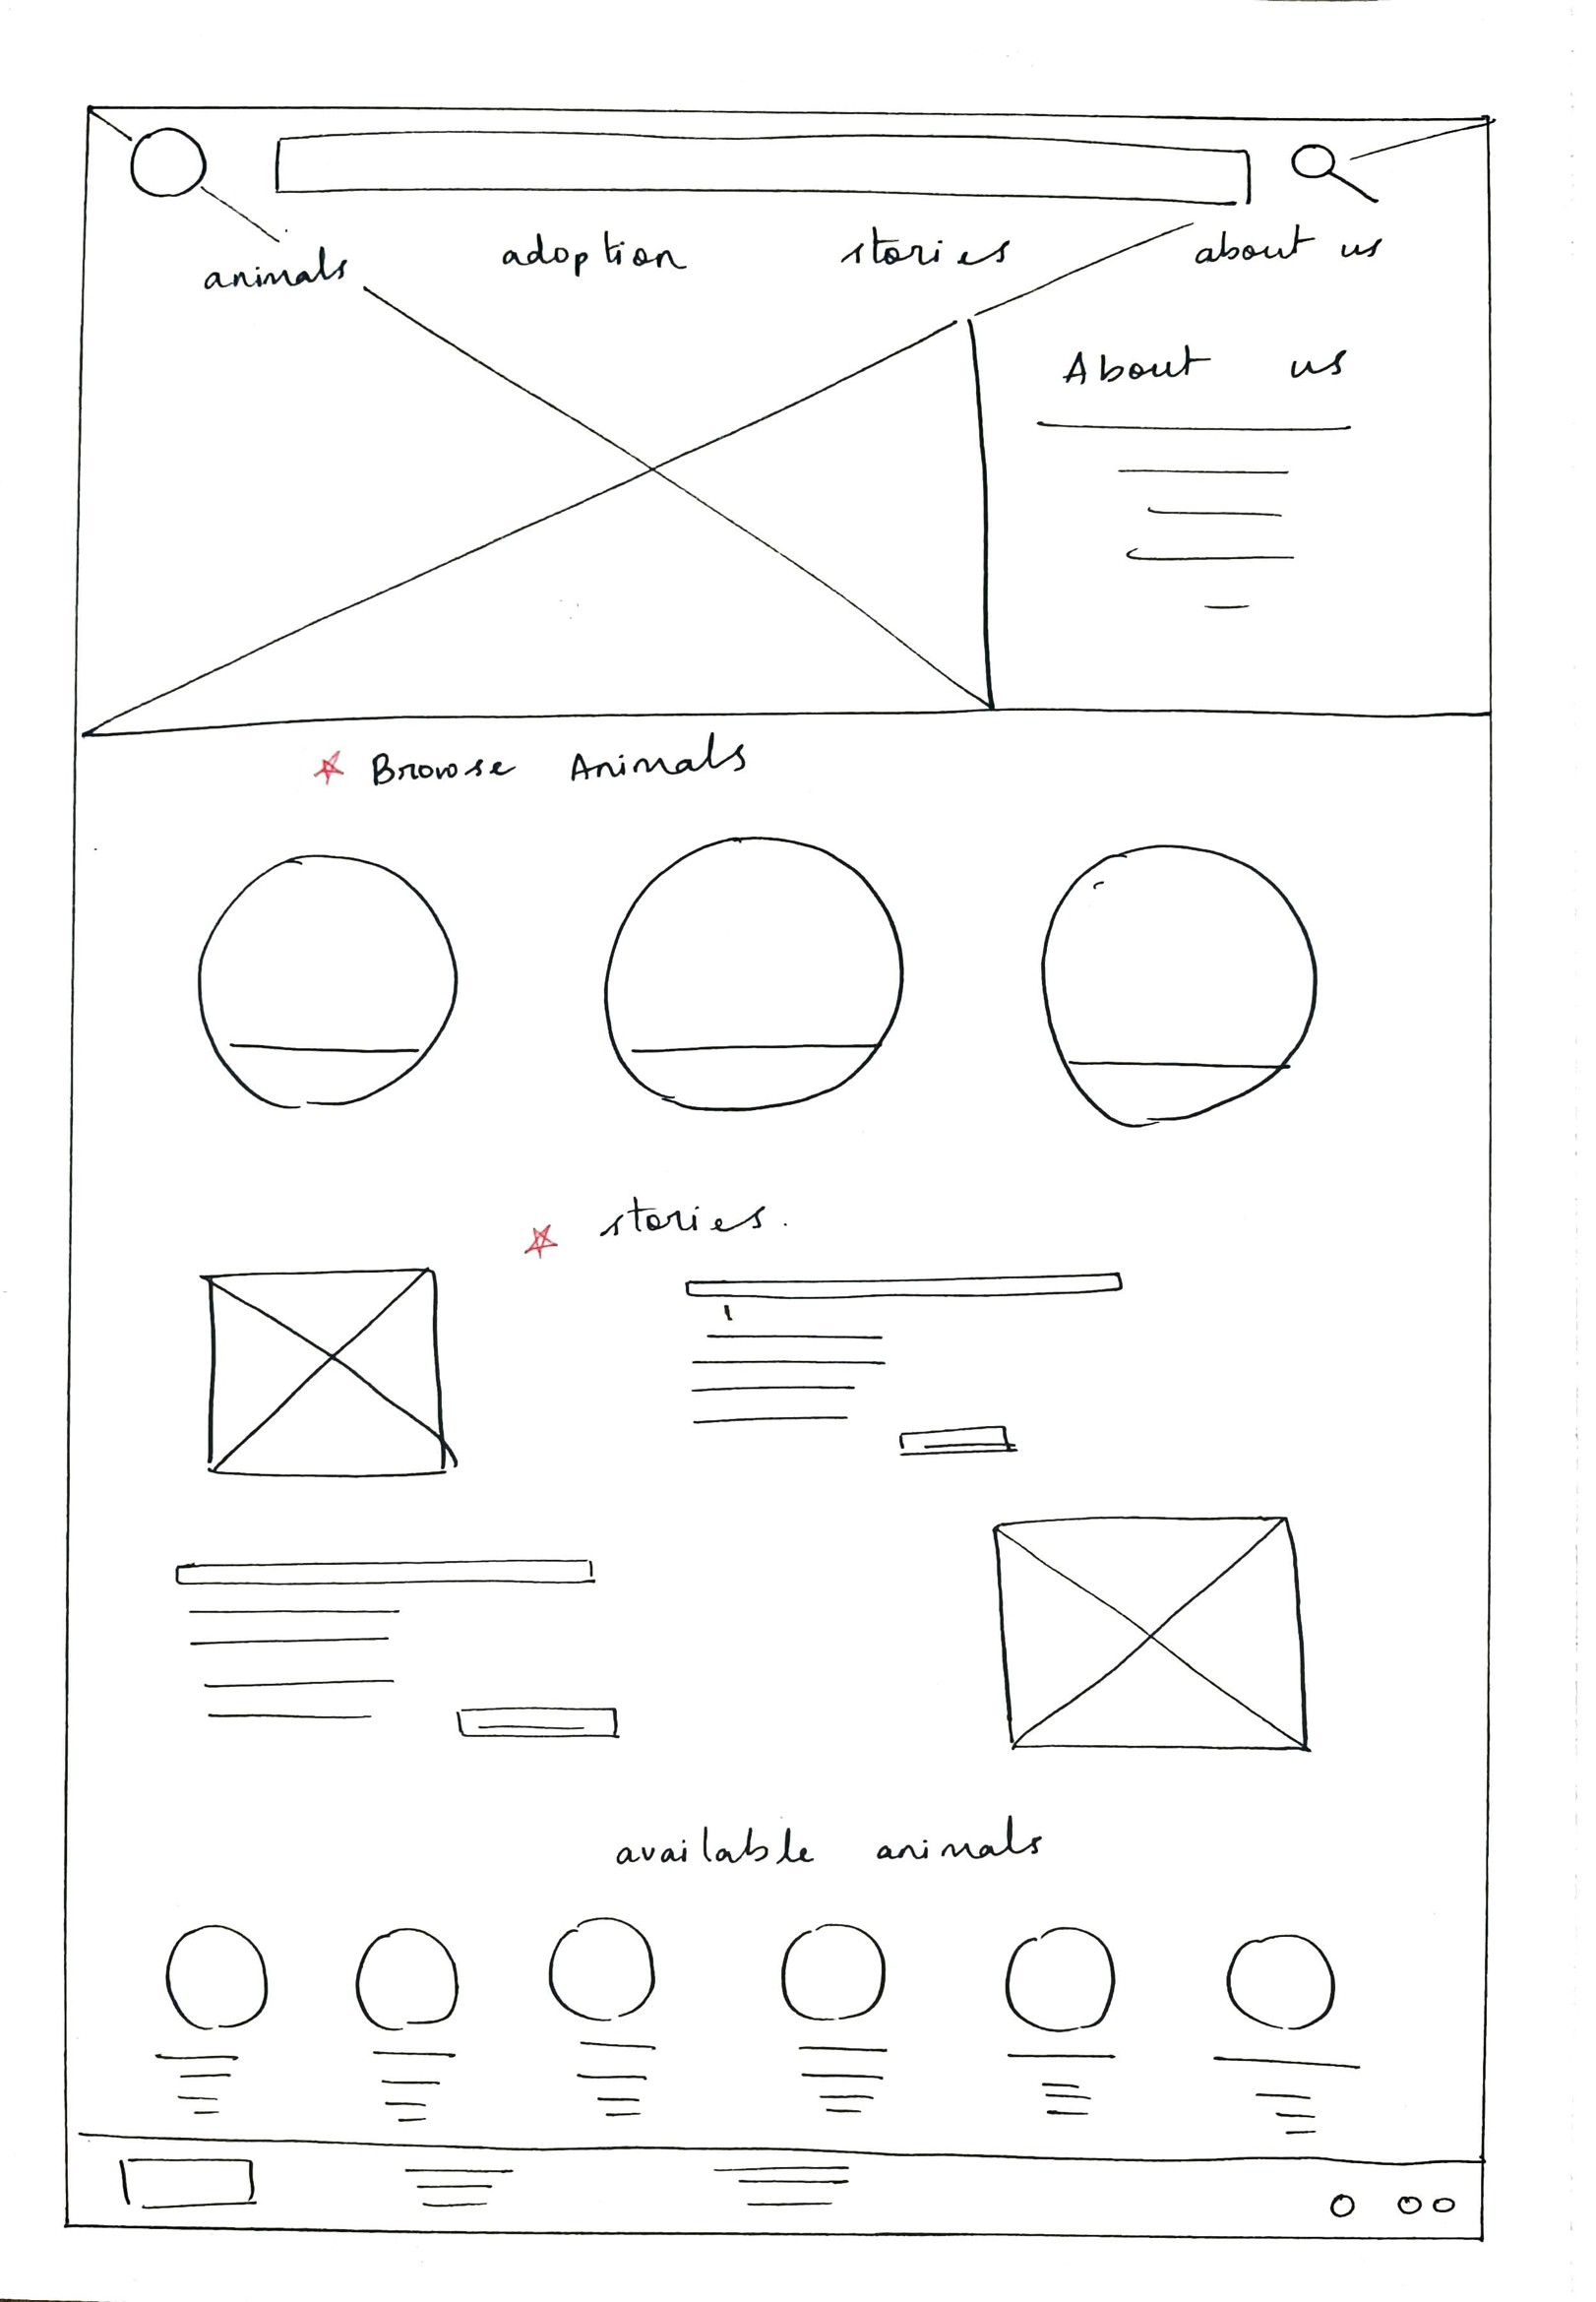 animals adoption stories about us
About us
Browse Animals
stories.
available animals